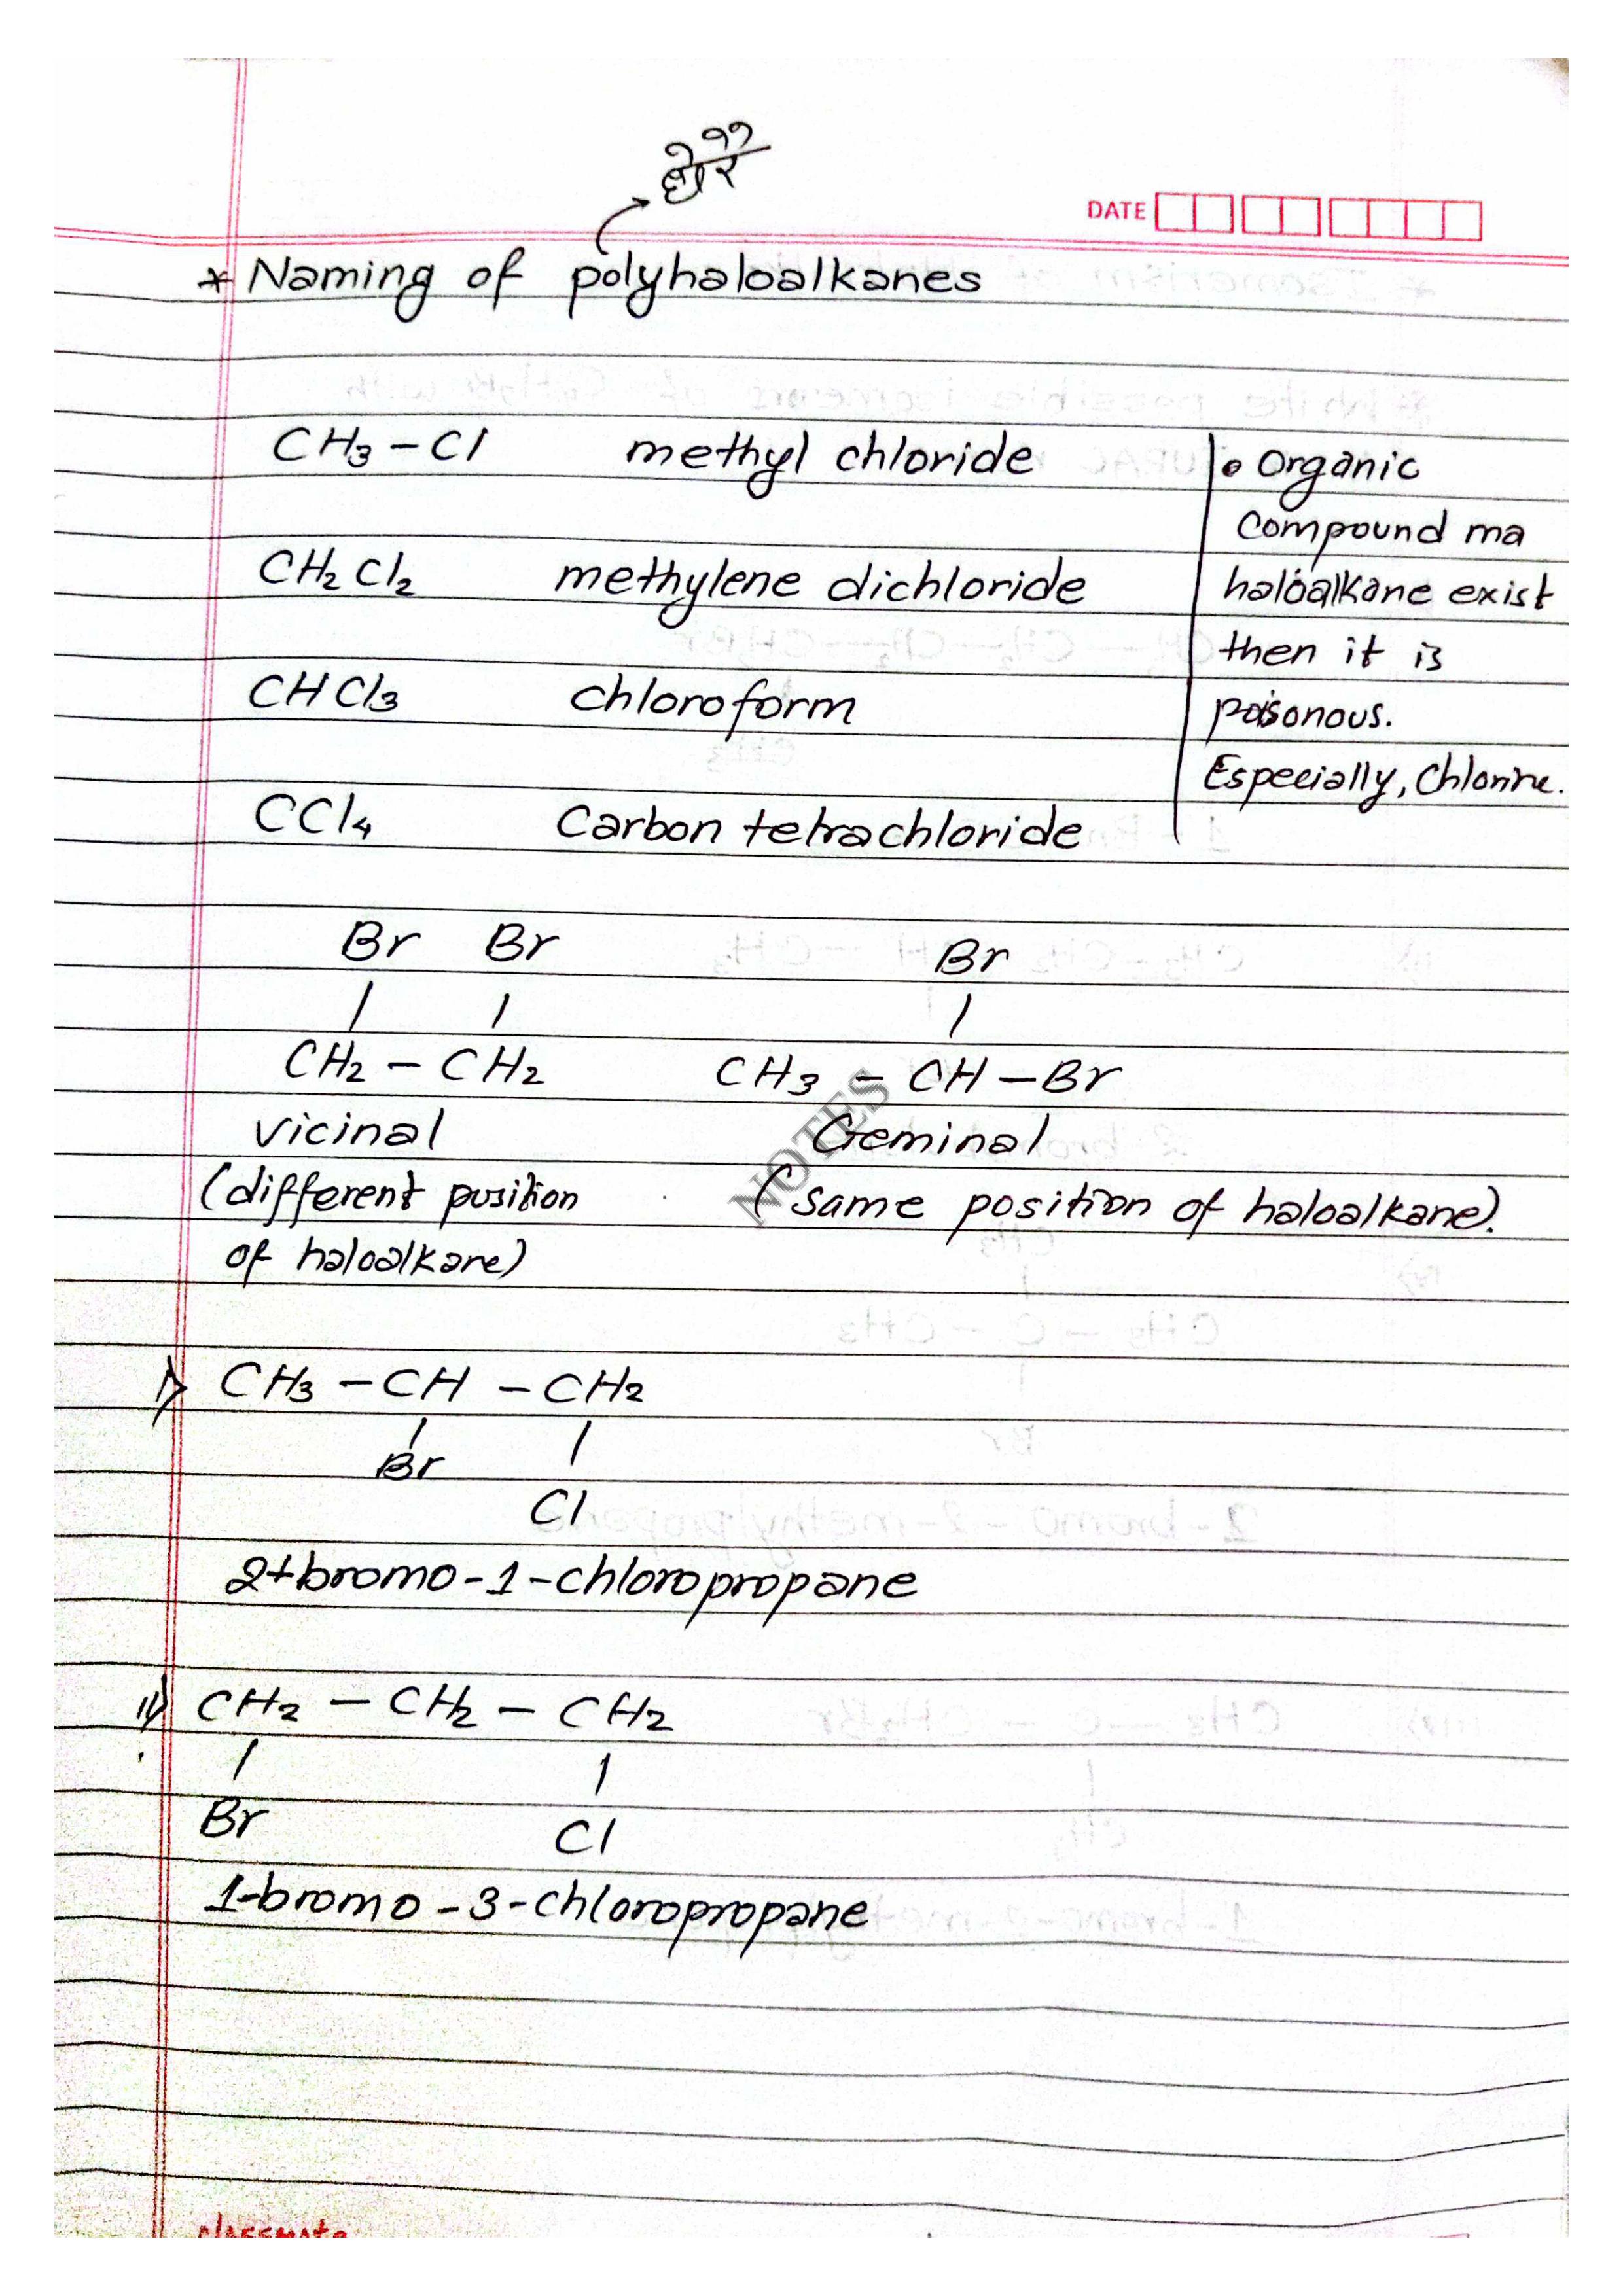 धेरै
DATE
* Naming of polyhaloalkanes
CH₃ – Cl methyl chloride
CH₂Cl₂ methylene dichloride
CHCl₃ chloroform
CCl₄ Carbon tetrachloride
• Organic
Compound ma
haloalkane exist
then it is
poisonous.
Especially, Chlorine.
Br Br
| |
CH₂ – CH₂
Vicinal
(different position
of haloalkane)
Br
|
CH₃ – CH – Br
Geminal
(same position of haloalkane).
NOTES
i) CH₃ – CH – CH₂
| |
Br
Cl
2-bromo-1-chloropropane
ii) CH₂ – CH₂ – CH₂
| |
Br Cl
1-bromo-3-chloropropane
classmate